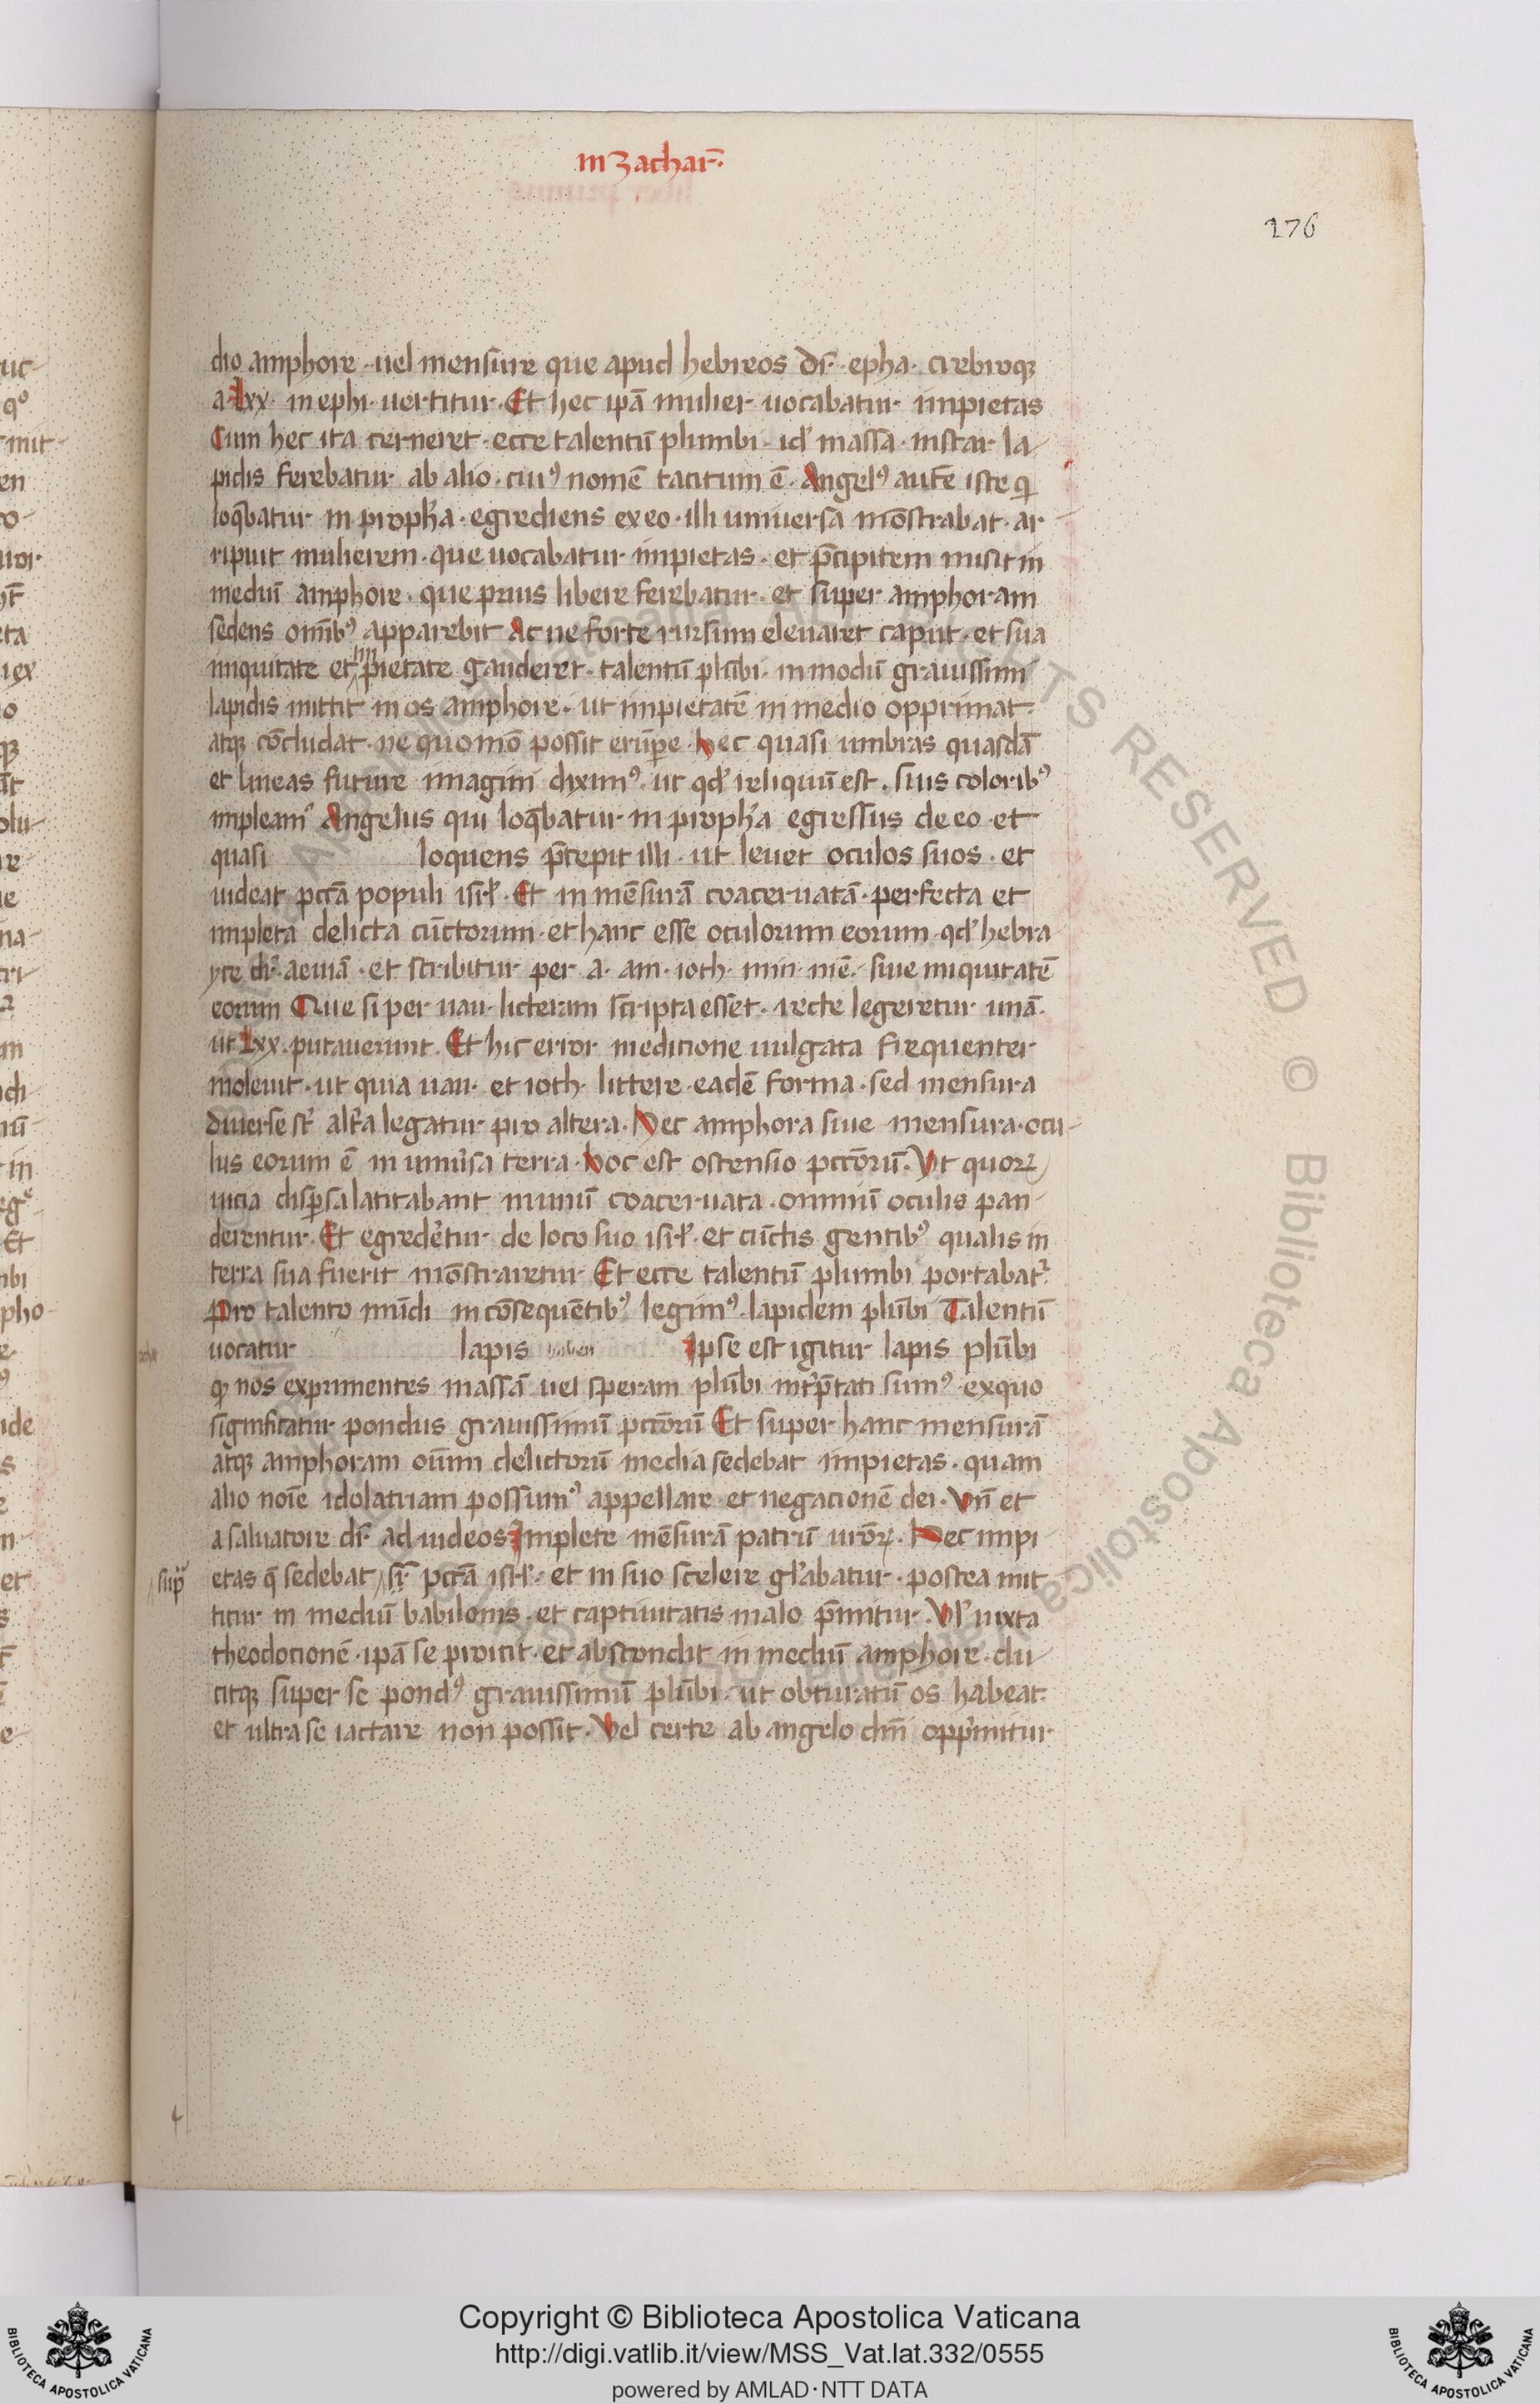 in Zachar̄.
276
dio amphore · uel mensure que apud hebreos dr̄ · epha · crebroqꝫ
a · Lxx · in ephi · uertitur · Et hec ip̄a mulier uocabatur impietas
Cum hec ita cerneret · ecce talentū plumbi · id̛ massa · instar la
pidis ferebatur ab alio · cuiꝰ nomē tacitum ē · Angelꝰ autē iste q̇
loq̄batur in proph̛a · egrediens ex eo · illi uniuersa mōstrabat · ar
ripuit mulierem · que uocabatur impietas · et p̄cipitem misit in
mediū amphore · que prius libere ferebatur · et super amphoram
sedens omībꝰ apparebit Ac ne forte rursum eleuaret caput · et sua
iniquitate et impietate gauderet · talentū plūbi · in modū grauissimi
lapidis mittit in os amphore · ut impietatē in medio opprimat
atqꝫ cōcludat · ne quomō possit erūꝑe · hec quasi umbras quasdā
et lineas future imagini diximꝰ · ut qd̛ reliquū est · suis coloribꝰ
impleamꝰ Angelus qui loq̄batur in proph̛a egressus de eo · et
quasi loquens p̄cepit illi · ut leuet oculos suos · et
uideat pctā̄ populi isrl̛ · Et in mēsurā coaceruatā · perfecta et
impleta delicta cūctorum · et hanc esse oculorum eorum · qd̛ hebra
yce dr̄ · aenā · et scribitur per a · am · ioth · nun · mē · siue iniquitatē
eorum Que si per uau · licteram scripta esset · recte legeretur unā ·
ut Lxx · putauerunt · Et hic error in edicione uulgata frequenter
inoleuit · ut quia uau · et ioth · littere · eadē forma · sed mensura
diuerse st̄ alt̛a legatur pro altera · Hec amphora siue mensura · ocu
lus eorum ē in uniưsa terra · hoc est ostensio pctōrū · Vt quoꝝ
uicia disꝑsa latitabant nunū coaceruata · omniū oculis pan
derentur · Et egredēt̛ur de loco suo isrl̛ · et cūctis gentibꝰ qualis in
terra sua fuerit mōstraretur Et ecce talentū plumbi portabat̛
Pro talento mūdi in cōsequētibꝰ legimꝰ · lapidem plūbi Talentū
uocatur lapis Ipse est igitur lapis plūbi
qꝫ nos exprimentes massā uel speram plūbi int̛p̄tati sumꝰ · ex quo
significatur pondus grauissimū pctōrū Et super hanc mensurā
atqꝫ amphoram oūm delictorū media sedebat impietas · quam
alio noīe idolatriam possumꝰ appellare · et negacionē dei · Vn̄ et
a saluatore dr̄ ad iudeos Implete mēsurā patrū urōꝝ · Hec impi
sup̄
etas q̄ sedebat, sr̄ pctā isrl̛ · et in suo scelere gl̛abatur · postea mit
titur in mediū babilonis · et captiuitatis malo p̄mitur · Vl̛ iuxta
theodotionē · ip̄a se proicit · et abscondit in mediū amphore · du
citqꝫ super se pondꝰ grauissimū plūbi · ut obturatū os habeat ·
et ultra se iactare non possit · Vel certe ab angelo dn̄i opp̛mitur
RIGHTS RESERVED © Biblioteca Apostolica Vaticana
Copyright © Biblioteca Apostolica Vaticana
http://digi.vatlib.it/view/MSS_Vat.lat.332/0555
powered by AMLAD · NTT DATA
BIBLIOTECA APOSTOLICA VATICANA
BIBLIOTECA APOSTOLICA VATICANA